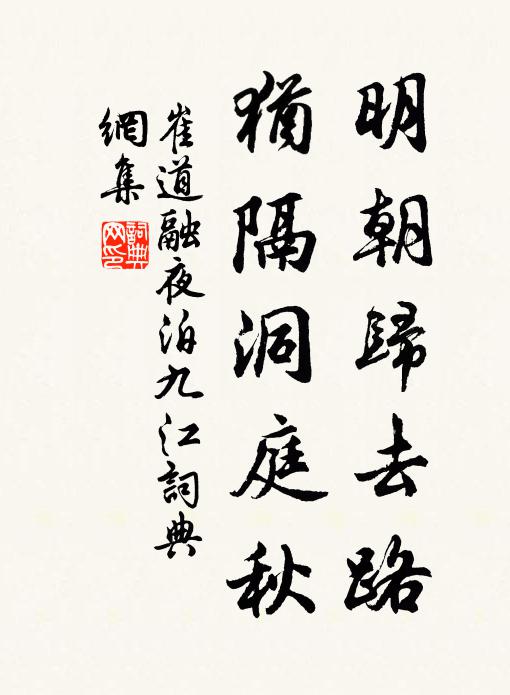 明朝歸去路
猶隔洞庭秋
崔道融夜泊九江詞典
網集
詞典
网印